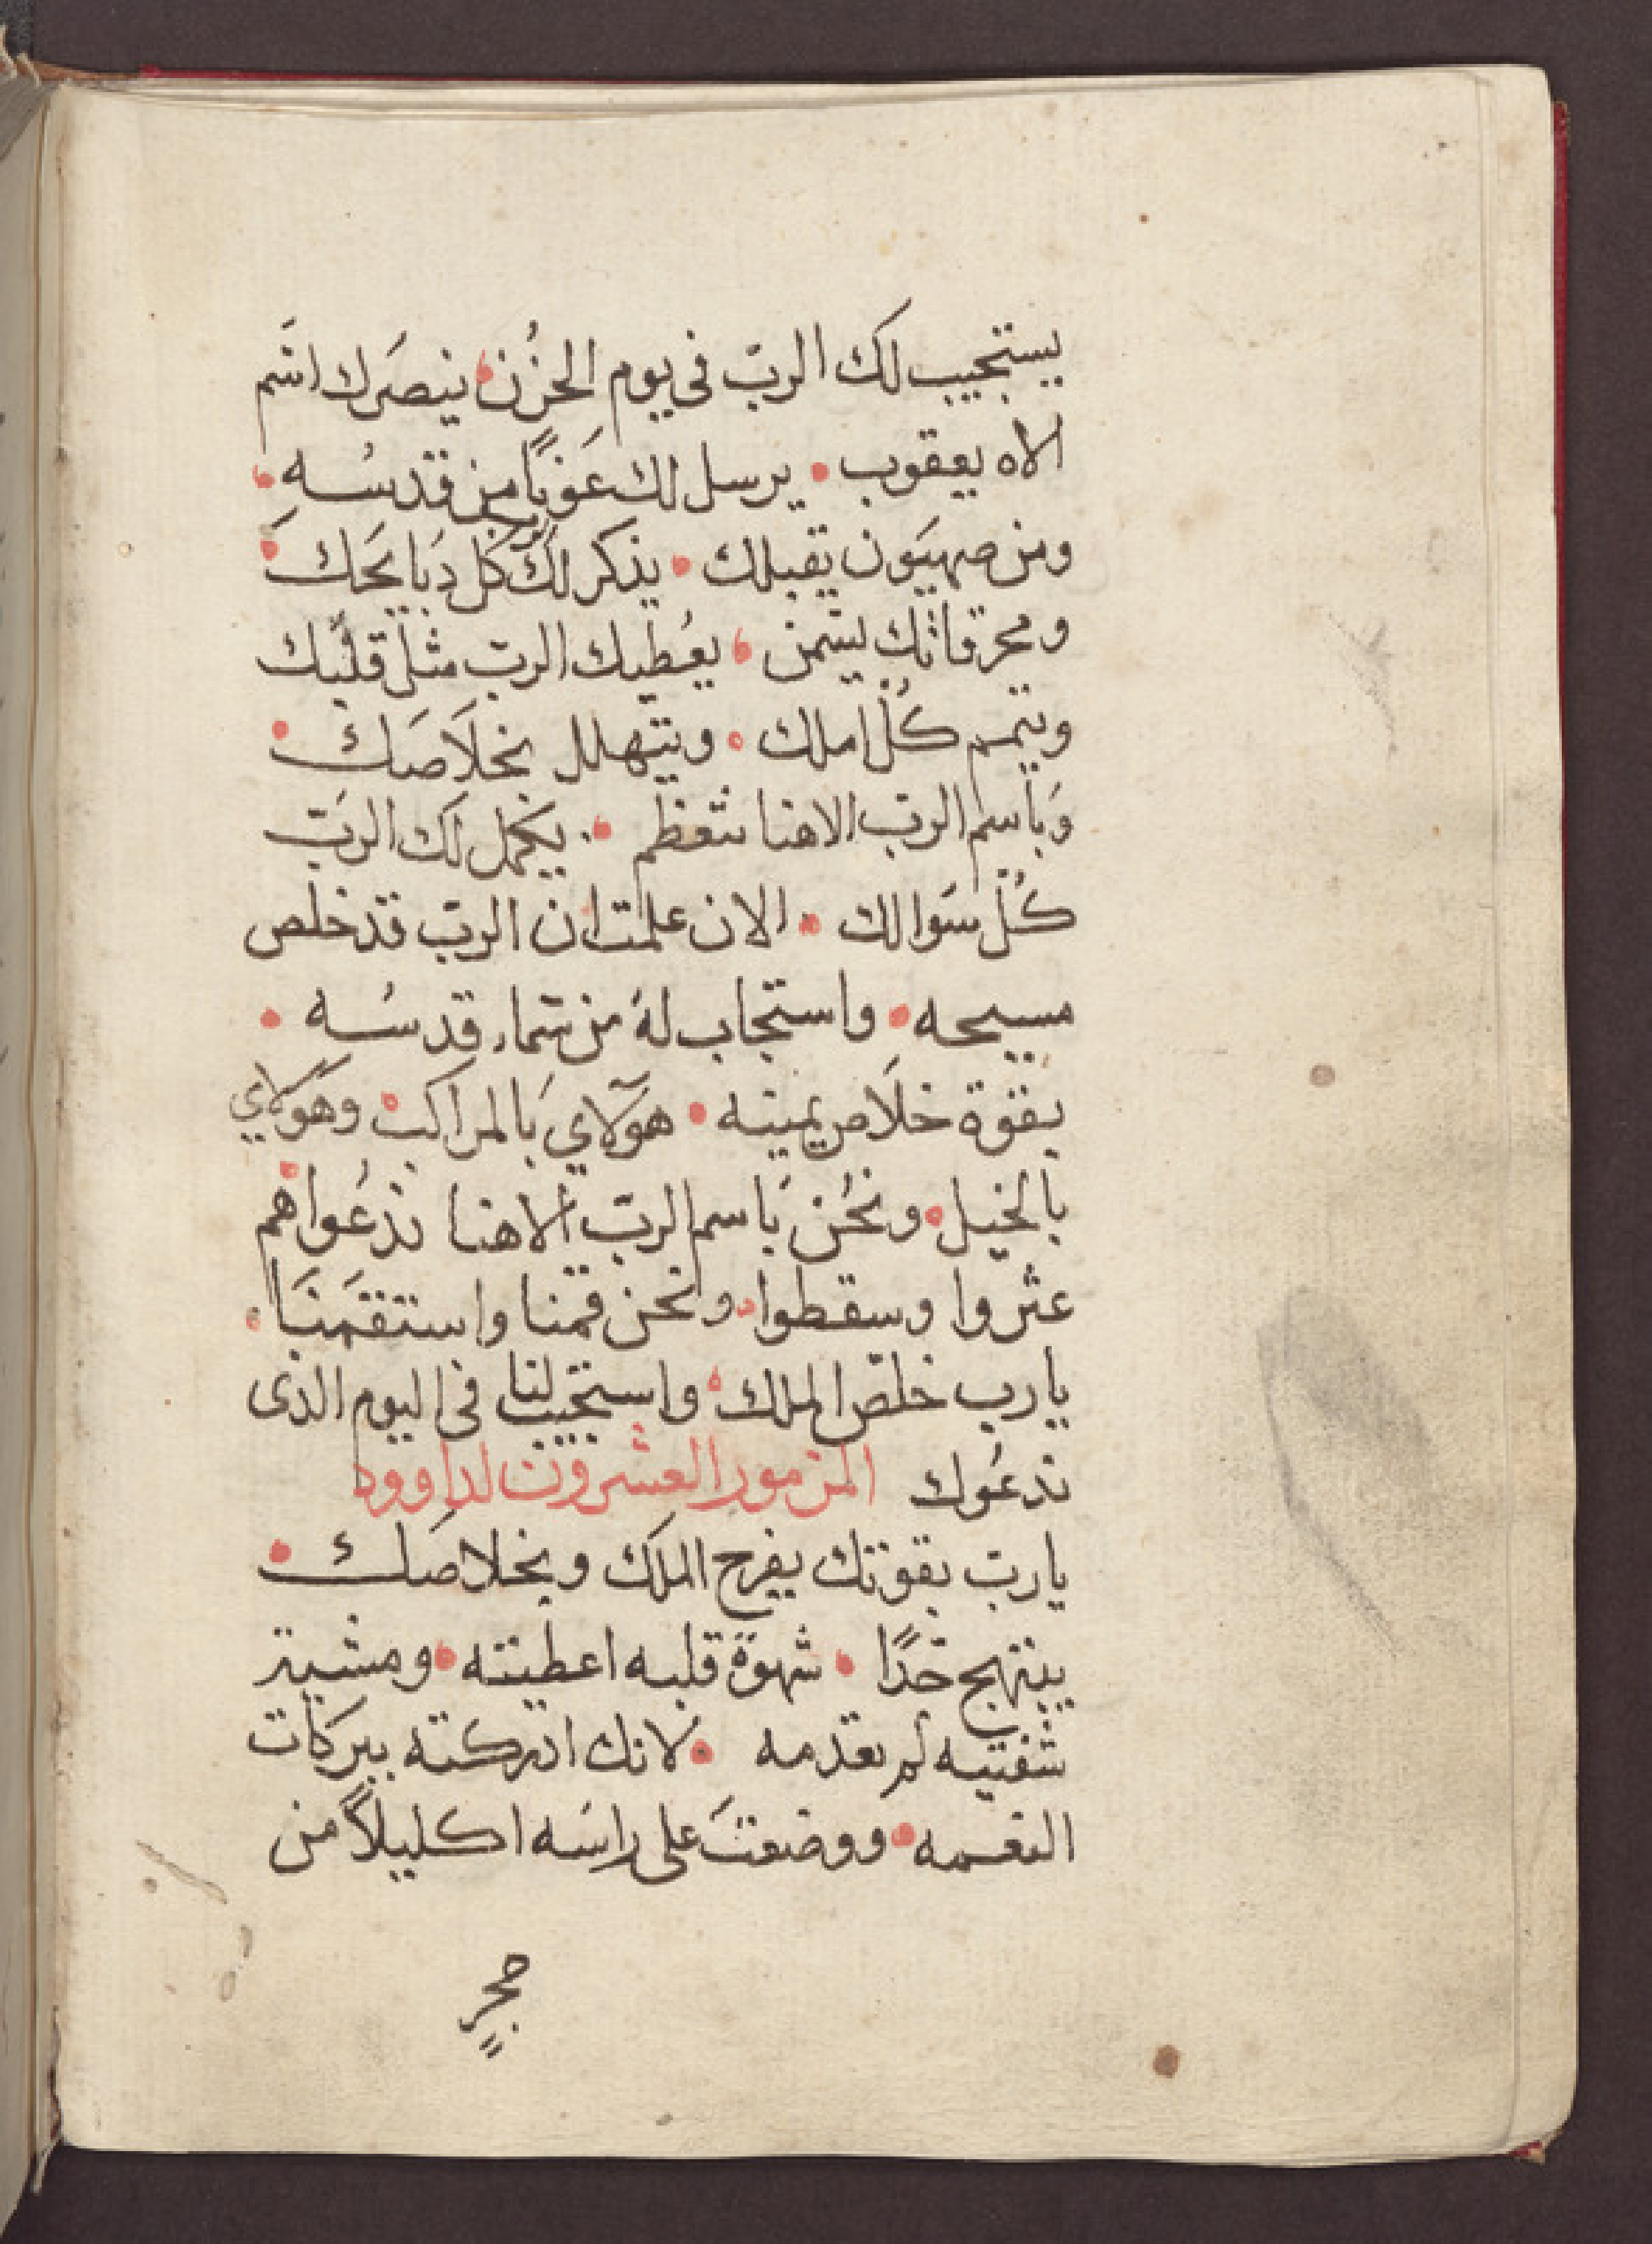 يستجيب لك الربّ في يوم الحزُن ينصرَك اسَم
الاه يعقوب يرسل لك عَونًا من قدسُه
ومن صهيَون يقبلك يذكر لك الرب كل دَبايحَك
ومحرقاتك يسَمن يعُطيك الربّ مثل قلبك
ويتمم كُلّ املك ونتهلل بخلاَصَك
وَباسم الربّ الاهنا نتعظم يكمل لَك الربَّ
كُلّ سَوالك الان علمت ان الربّ قد خلص
مسيحه واستجاب لهُ من سَماء قدسُه
بقوة خلاَص يمينه هوَلآي بَالمراكب وهوَلاي
بالخيل ونحُن بَاسم الربّ الاهنا ندعُوا هم
عثروا وسقطوا ونحن قمنا واستقمَنَا
يارب خلصّ الملك واستجيب لنا في اليوم الذي
ندعُوك المزمور العشرون لداوود
ياربّ بقوتك يفرح الملَك وبخلاصَك
يبتهج جدًا شهوة قلبه اعطيته ومشية
شفتيه لم تعدمه لانك ادركته ببرَكات
النعمه ووضعتَ علي راسَه اكليلاً من
حجرٍ